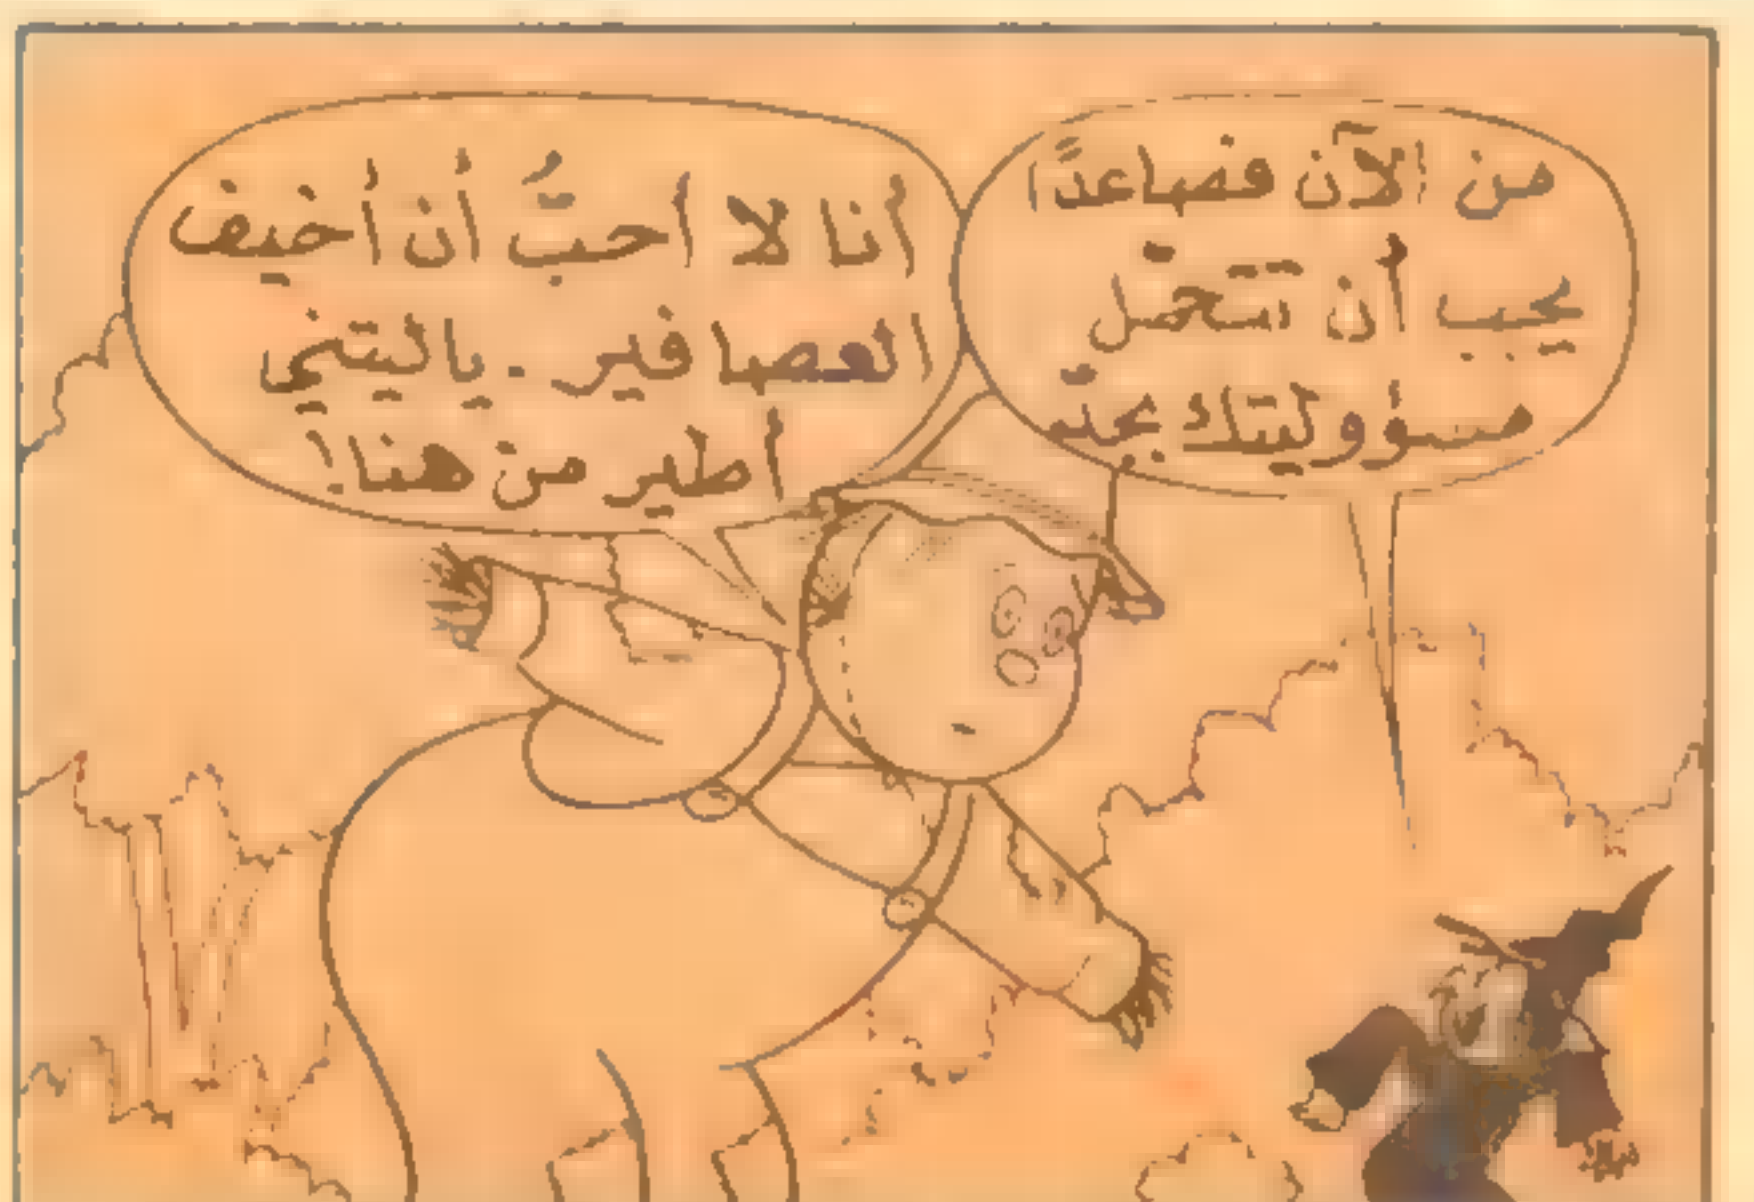 من الآن فصاعدًا
يجب أن تتحمّل
مسؤوليتك بجدّ
أنا لا أحبُّ أن أخيف
العصافير. ياليتني
أطير من هنا!